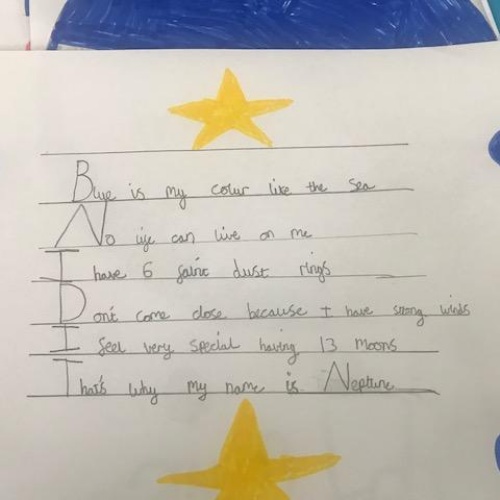 Blue is my colour like the sea
No life can live on me
I have 6 faint dust rings
Dont come close because I have strong winds
I feel very special having 13 moons
That's why my name is Neptune